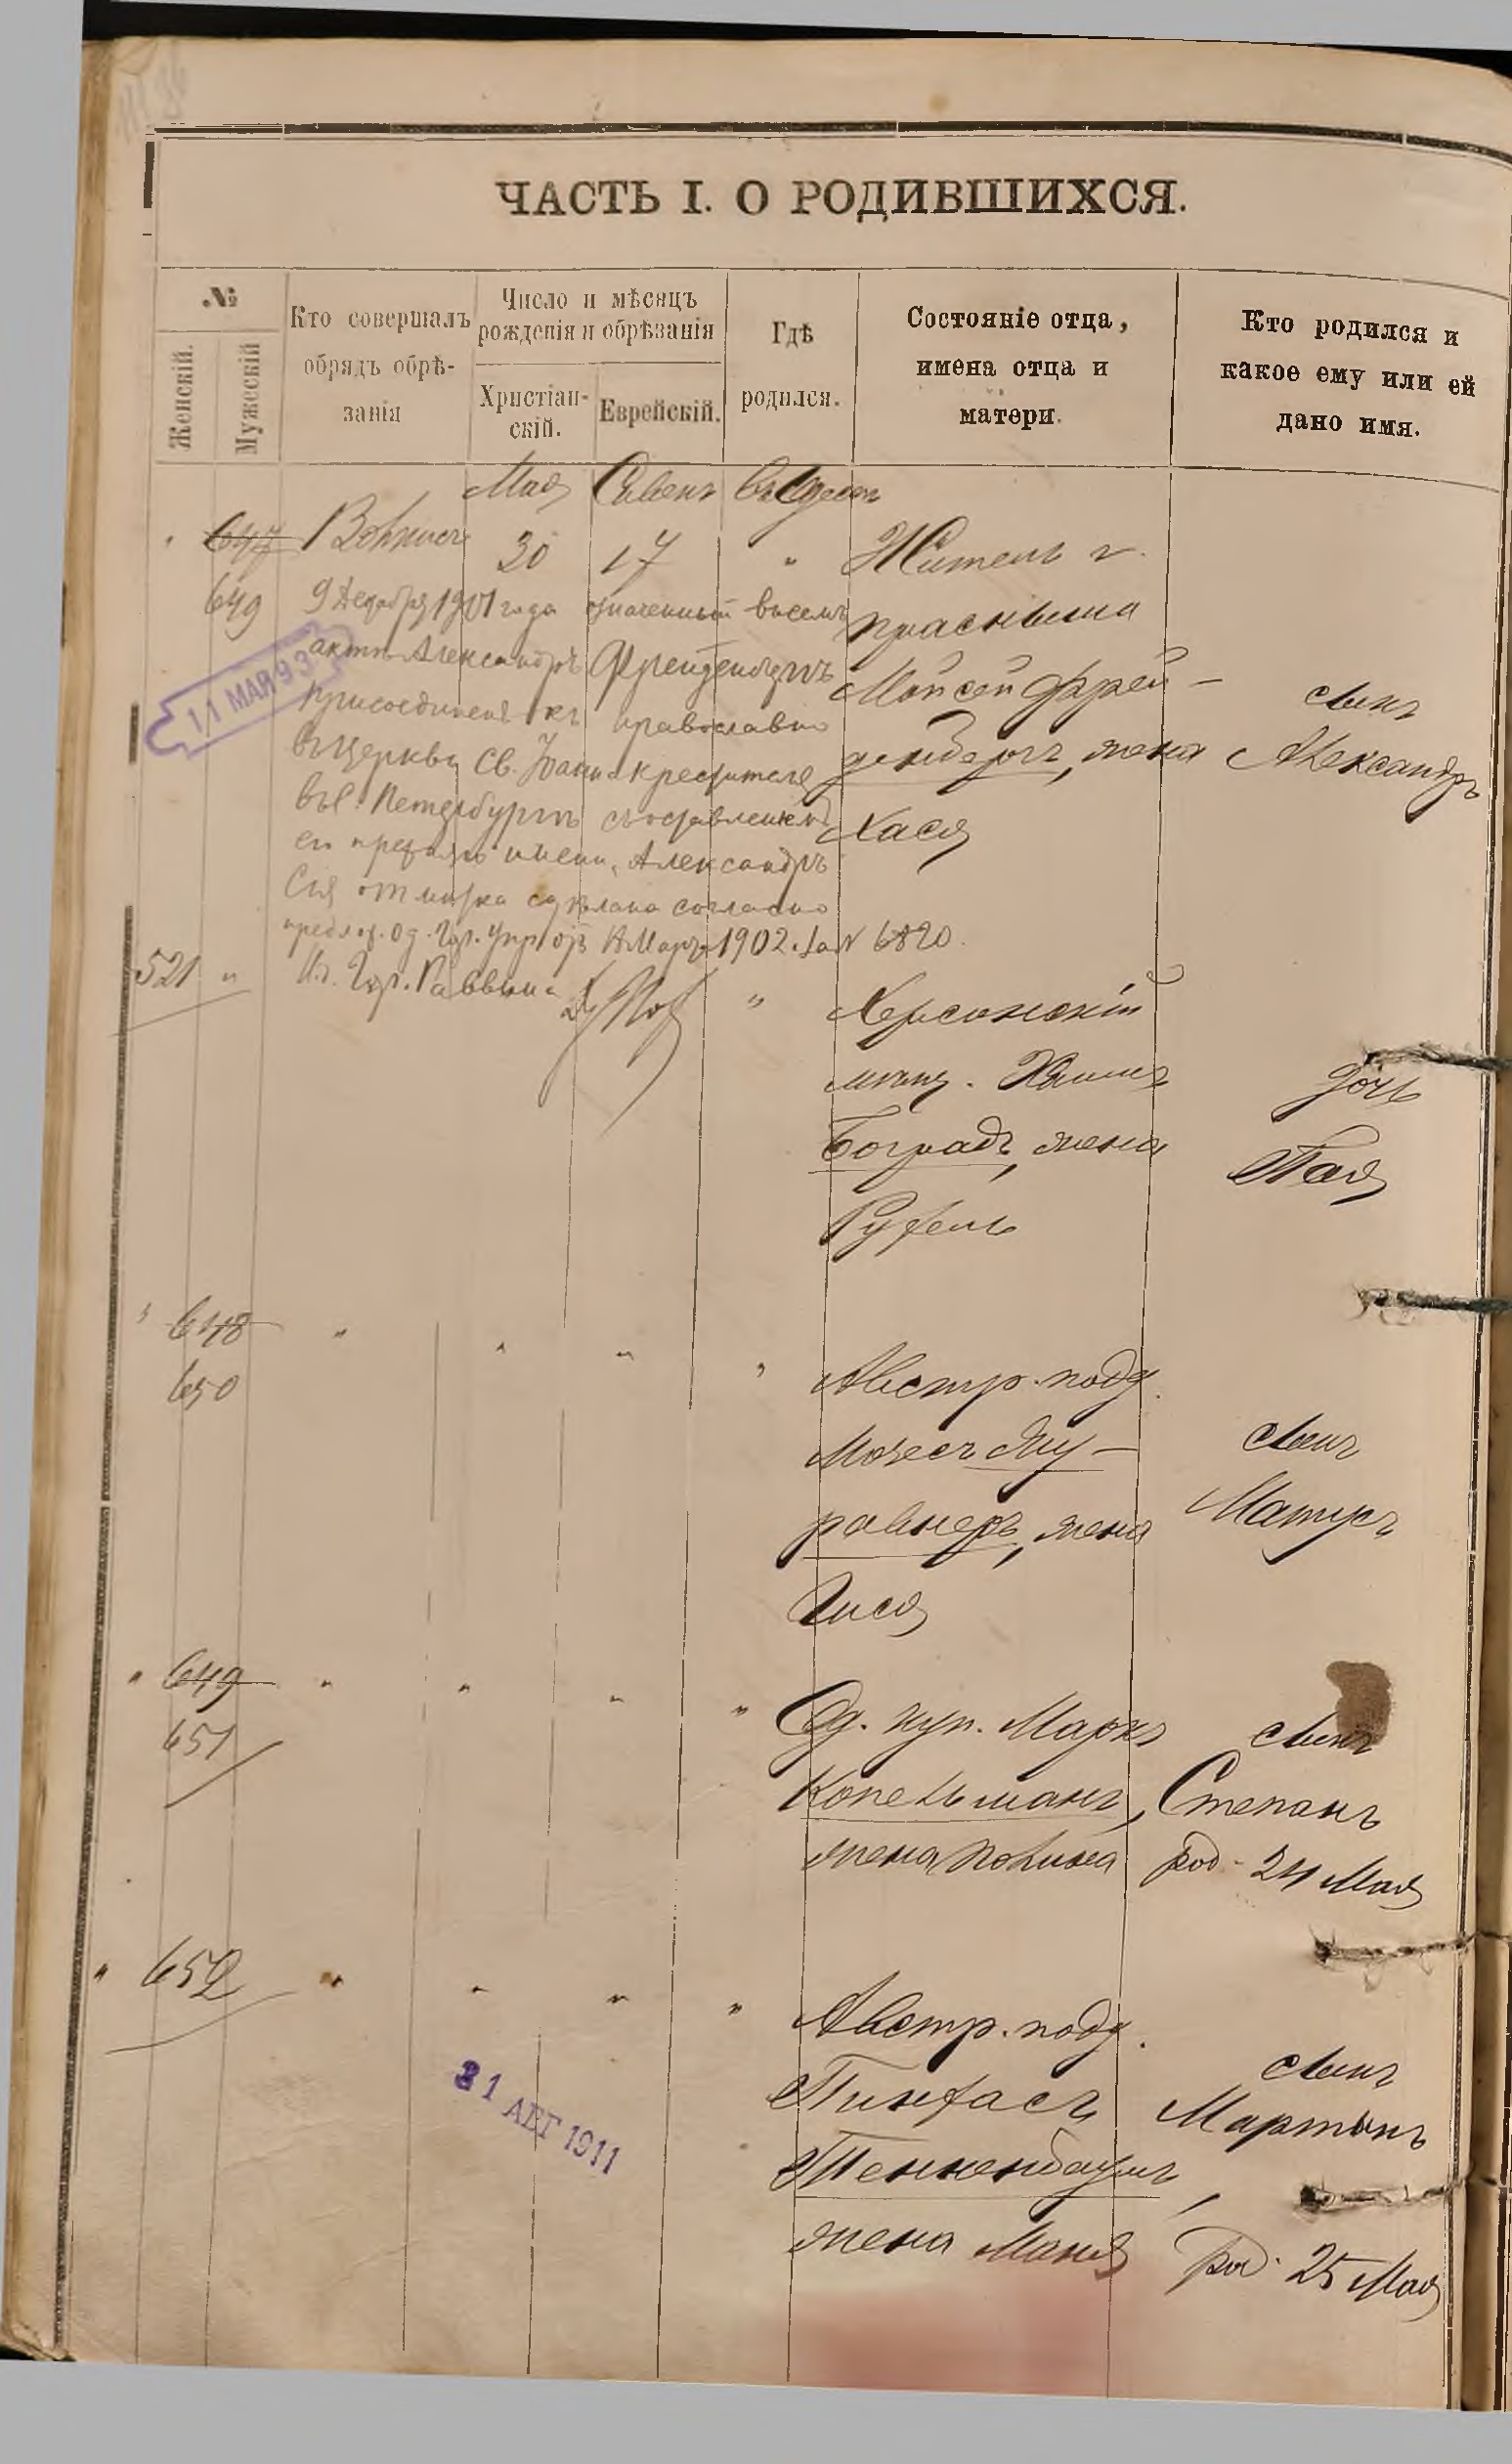 ЧАСТЬ I. О РОДИВШИХСЯ.
№
Женскій.
Мужескій
Кто совершалъ
обрядъ обрѣ-
занія
Число и мѣсяцъ
рожденія и обрѣзанія
Христіан-
скій.
Еврейскій.
Гдѣ
родился.
Состояніе отца,
имена отца и
матери.
Кто родился и
какое ему или ей
дано имя.
Мая Сиванъ въ Одессѣ
" 647 30 17 " Житель г.
649
прасныша
Мойсей Фрей-
денбергъ, жена
Хася
сынъ
Александръ
9 Декабря 1901 года означенный въ семъ
актѣ Александръ Фрейденбергъ
присоединенъ къ православію
въ церкви Св. Іоанна Крестителя
въ С. Петербургѣ съ оставленіемъ
ему прежняго имени „Александръ
Сія отмѣтка сдѣлана согласно
предлож. Од. Гор. Упр. отъ Марта 1902 г. за № 6820.
И. д. Гор. Раввина
11 МАЯ 93
521 " "
Херсонскій
мѣщ. Хаимъ
Боградъ, жена
Рухель
дочь
Пая
" 648 " " " "
650
Австр. подд.
Мозесъ Яу-
равнеръ, жена
Гися
сынъ
Матусъ
" 649 " " " "
651
Од. куп. Маркъ
Копельманъ,
жена Полина
сынъ
Степанъ
род. 24 Мая
" 652 " " " "
Австр. подд.
Пинхасъ
Тенненбаумъ,
жена Маня
сынъ
Мартынъ
род. 25 Мая
31 АВГ 1911